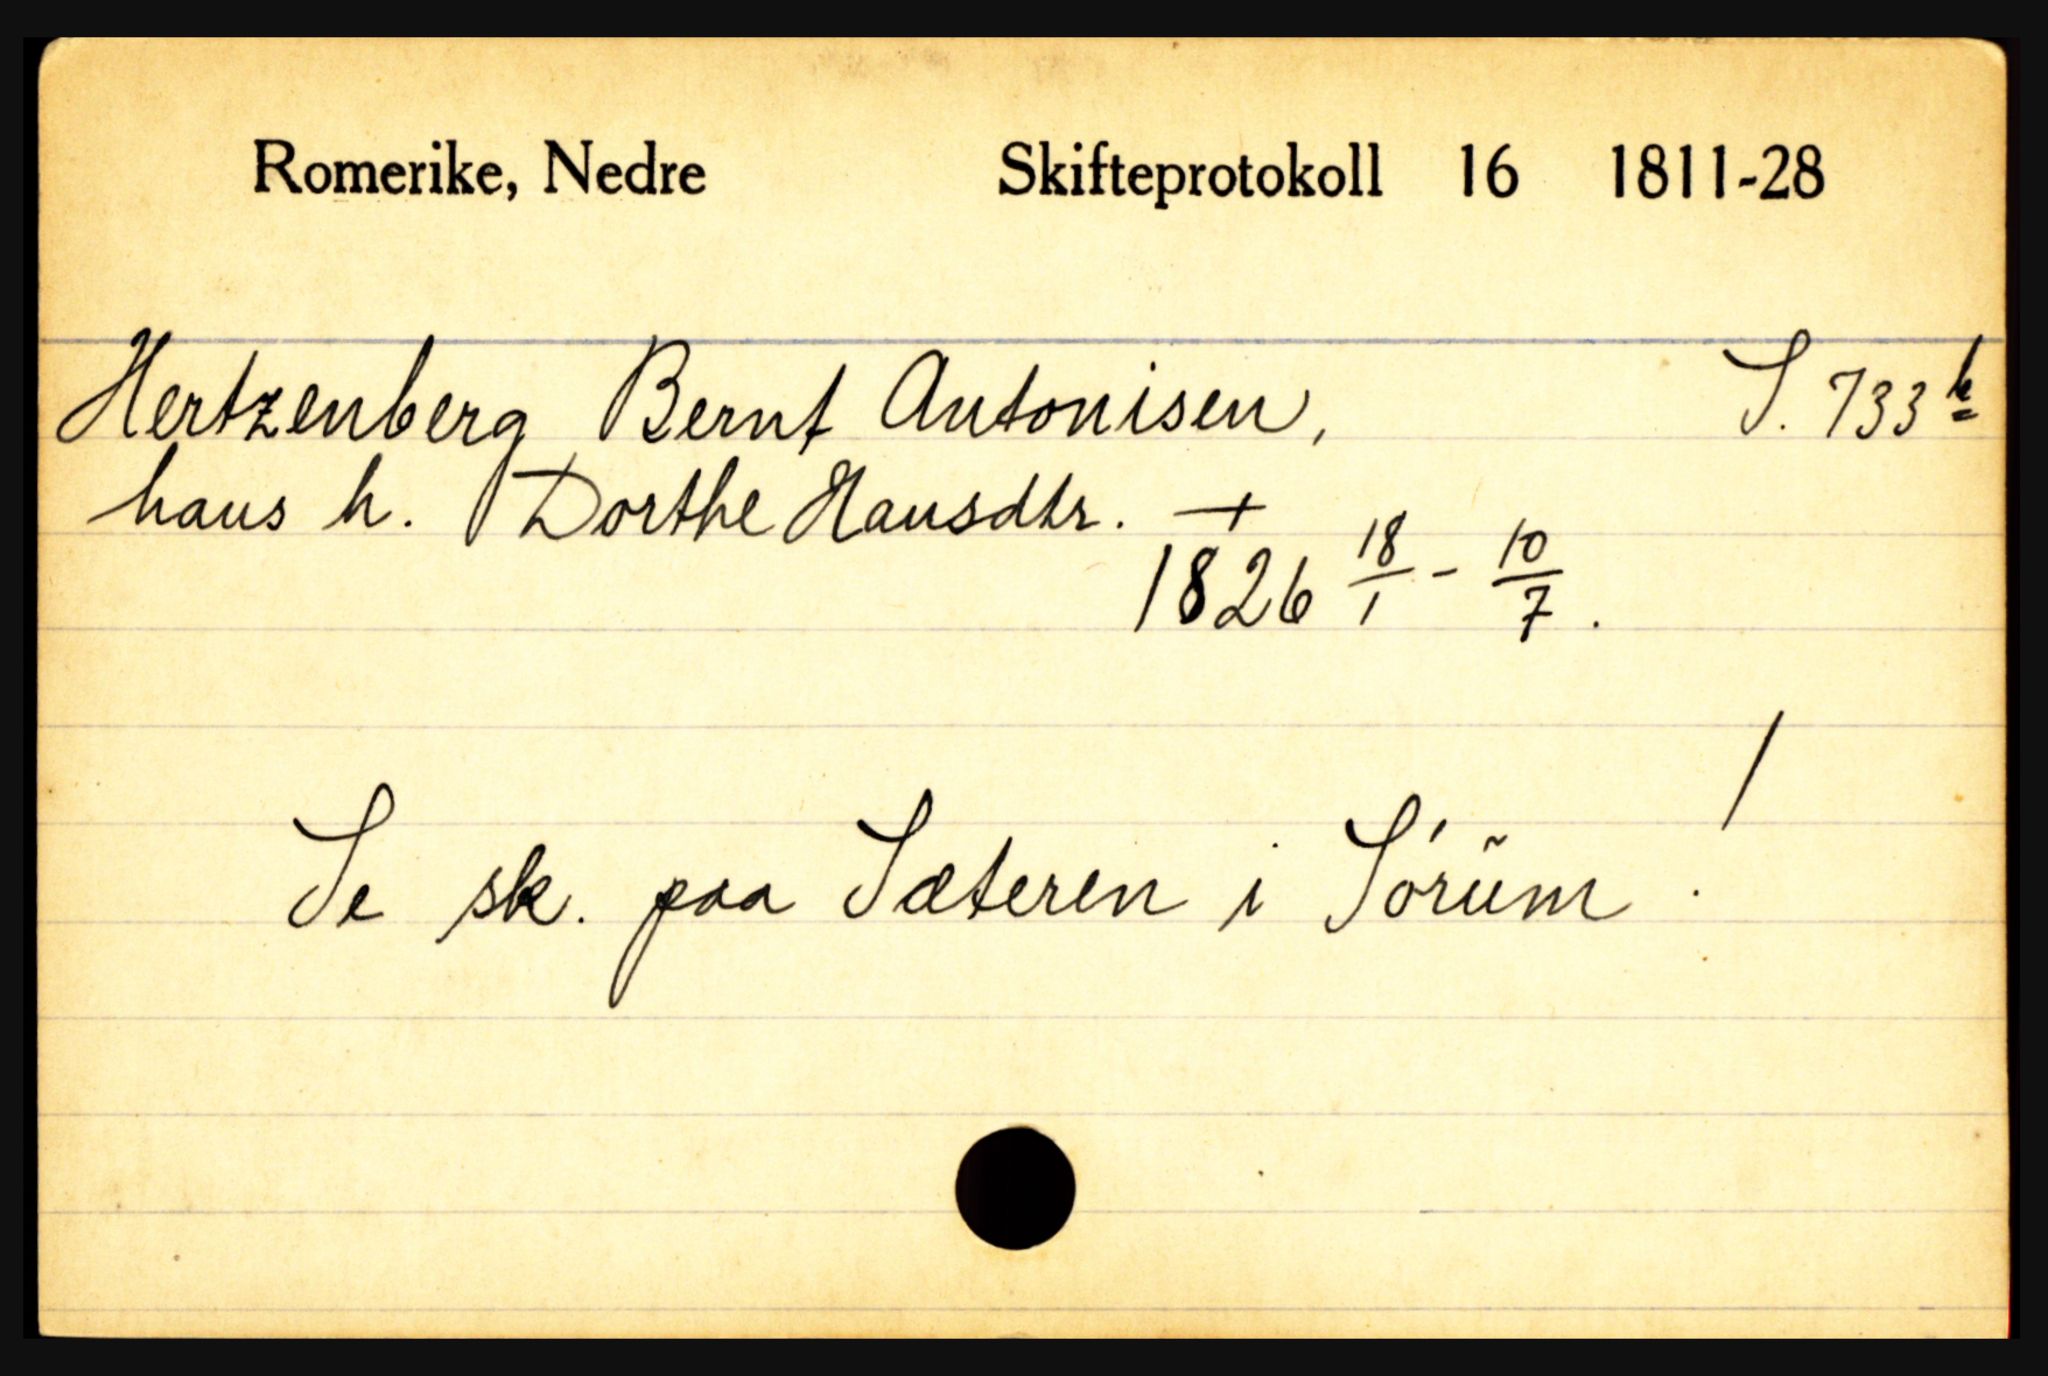 Romerike, Nedre Skifteprotokoll 16 1811-28
Hertzenberg Bernt Antonisen, S. 733
hans h. Dorthe Hansdtr. +
1826 18/1 - 10/7.
Se sk. paa Sæteren i Sórŭm !